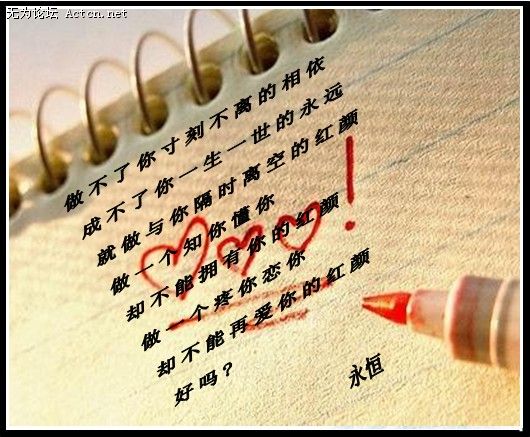 无为论坛 Actcn.net
做不了你寸刻不离的相依
成不了你一生一世的永远
就做与你隔时离空的红颜
做一个知你懂你
却不能拥有你的红颜
做一个疼你恋你
却不能再爱你的红颜
好吗?
永恒